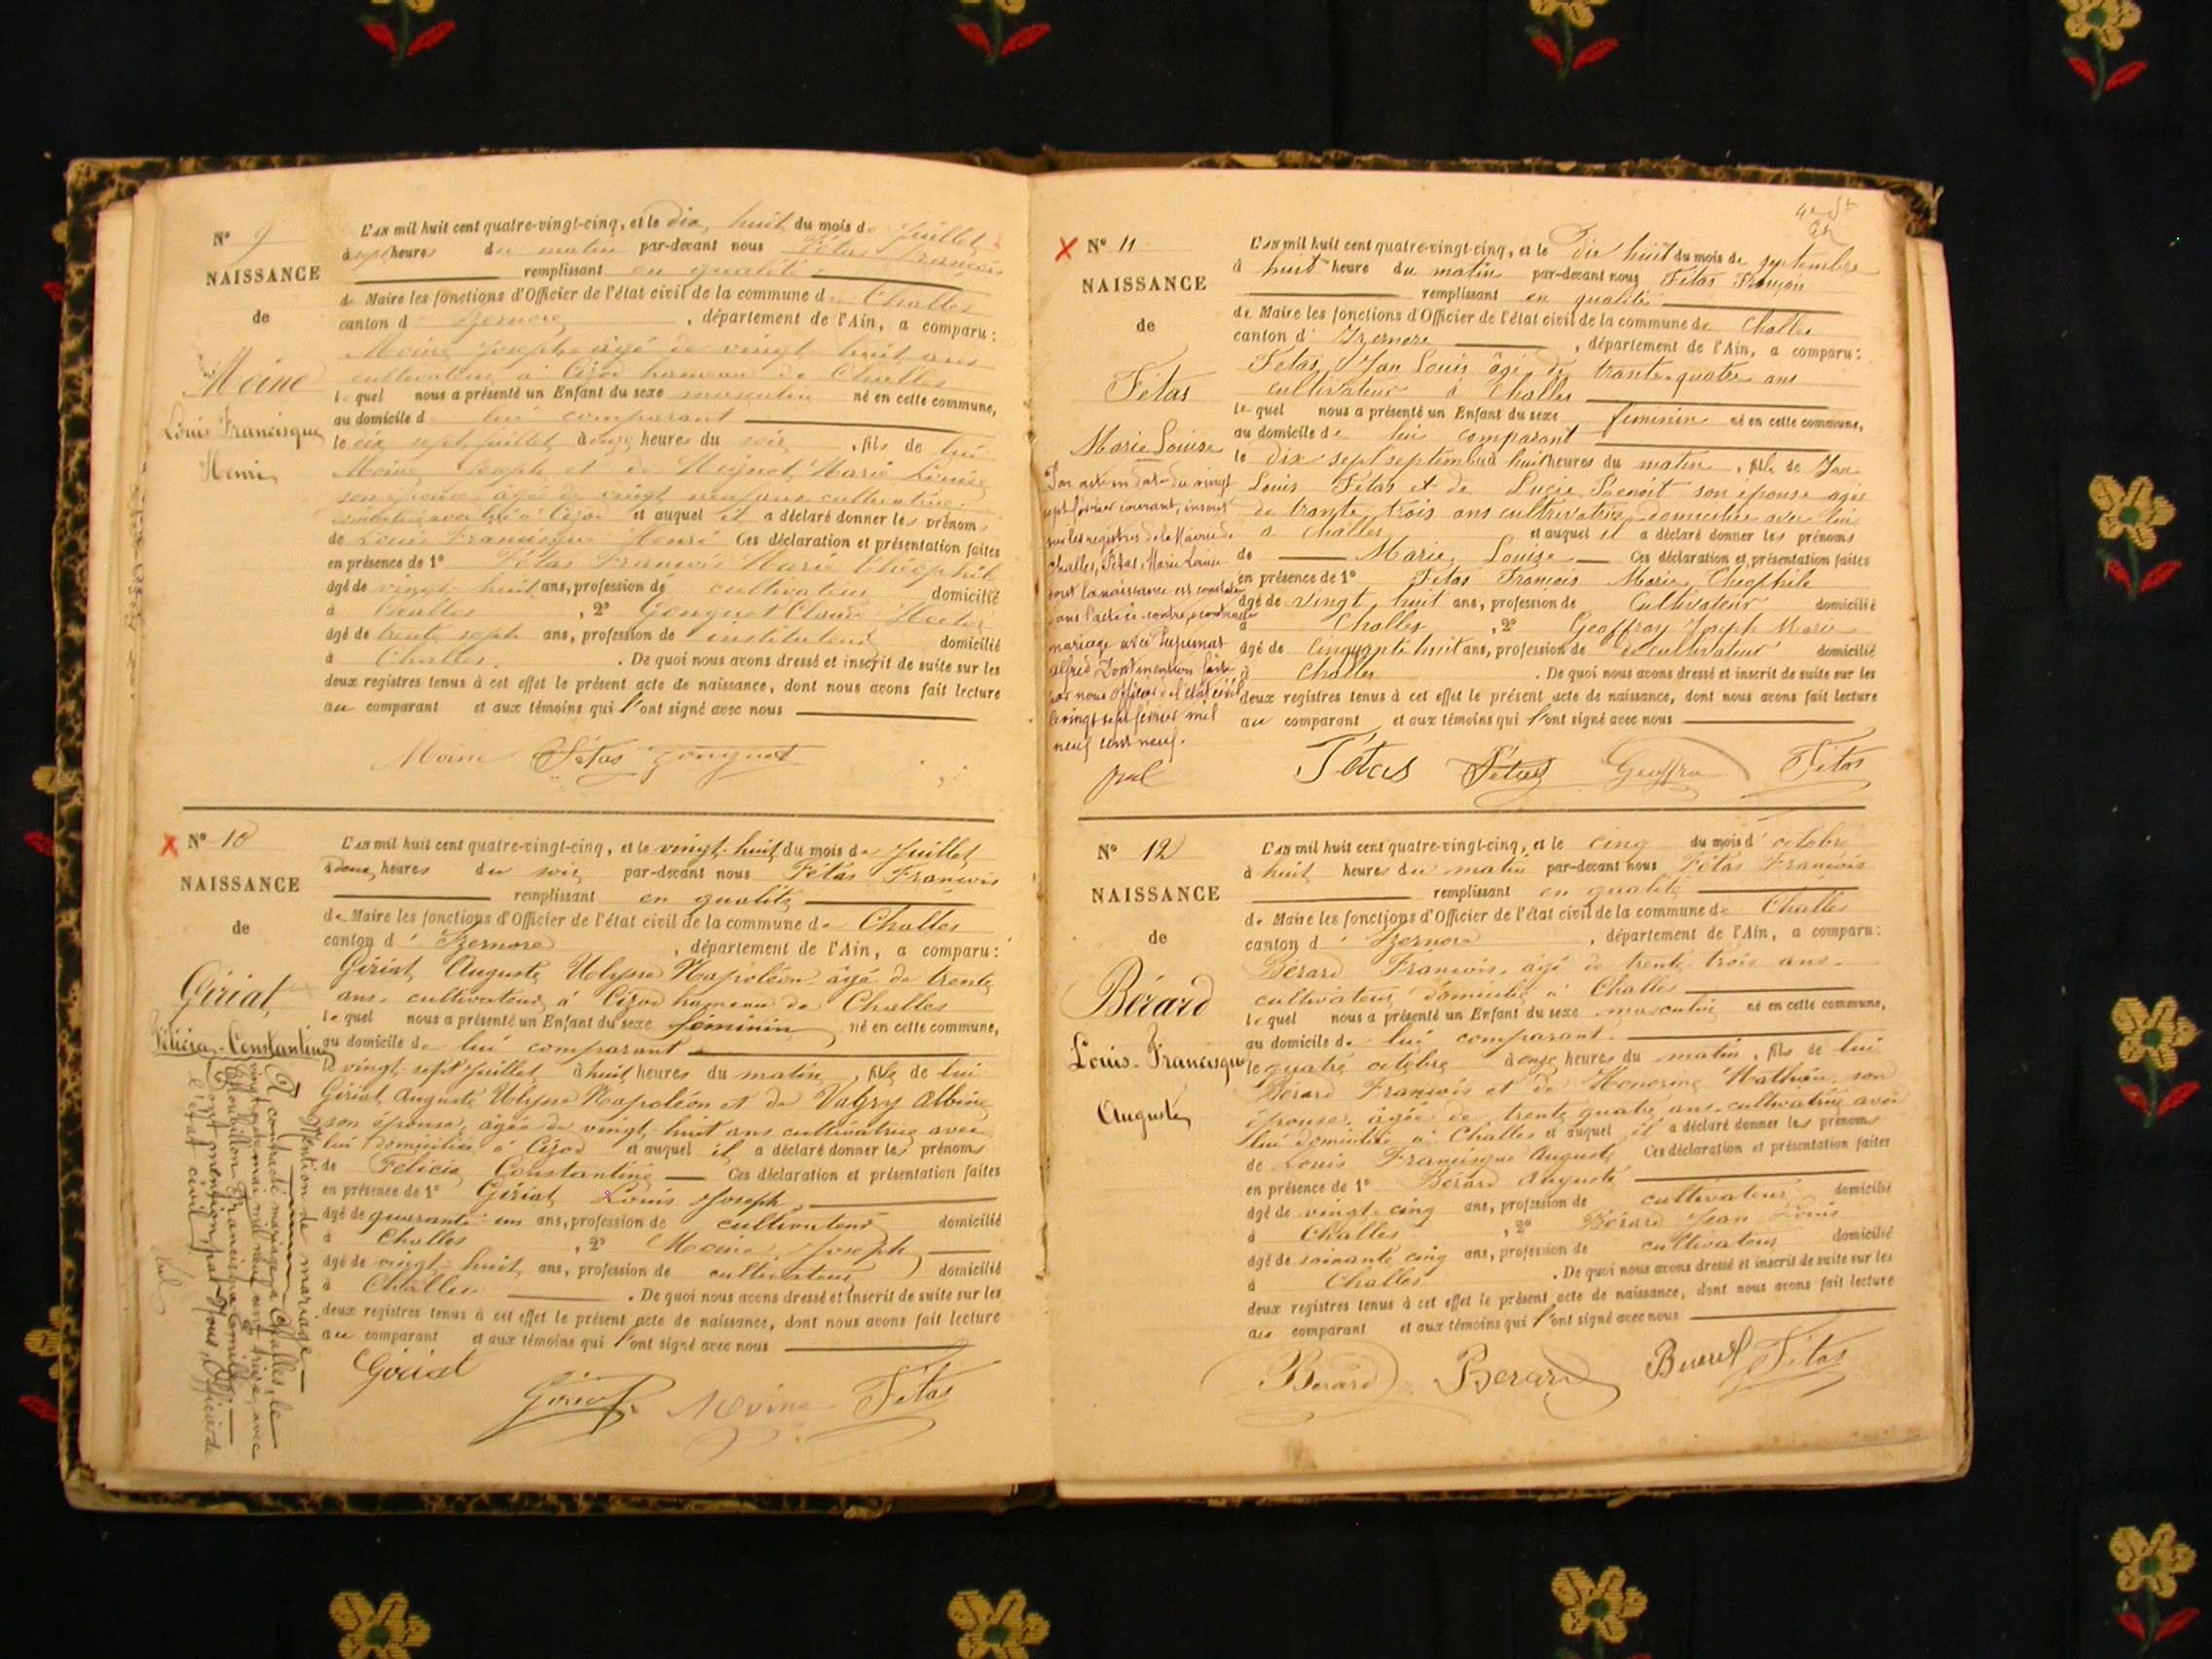 N° 9
NAISSANCE
de
Moine
Louis Francisque
Henri
L'an mil huit cent quatre-vingt-cinq, et le dix huit du mois de Juillet
à sept heures du matin par-devant nous Fétas François
remplissant en qualité
de Maire les fonctions d'Officier de l'état civil de la commune de Challes
canton d' Izernore, département de l'Ain, a comparu :
Moine Joseph âgé de vingt huit ans
cultivateur à Cizod hameau de Challes
lequel nous a présenté un Enfant du sexe masculin né en cette commune,
au domicile de lui comparant
le dix sept juillet à onze heures du soir, fils de lui
Moine Joseph et de Marie Louise
son épouse âgée de vingt neuf ans cultivatrice
domiciliée avec lui à Cizod et auquel il a déclaré donner les prénoms
de Louis Francisque Henri Ces déclaration et présentation faites
en présence de 1° Fétas François Marie Théophile
âgé de vingt-huit ans, profession de cultivateur domicilié
à Challes, 2° Gonguet Claude Hector
âgé de trente sept ans, profession de instituteur domicilié
à Challes. De quoi nous avons dressé et inscrit de suite sur les
deux registres tenus à cet effet le présent acte de naissance, dont nous avons fait lecture
au comparant et aux témoins qui l'ont signé avec nous
Moine Fétas Gonguet
N° 10
NAISSANCE
de
Gériat
Félicia-Constantine
L'an mil huit cent quatre-vingt-cinq, et le vingt-huit du mois de Juillet
à deux heures du soir par-devant nous Fétas François
remplissant en qualité
de Maire les fonctions d'Officier de l'état civil de la commune de Challes
canton d' Izernore, département de l'Ain, a comparu :
Gériat Auguste Ulysse Napoléon âgé de trente
ans cultivateur à Cizod hameau de Challes
lequel nous a présenté un Enfant du sexe féminin né en cette commune,
au domicile de lui comparant
le vingt-sept Juillet à huit heures du matin, fille de lui
Gériat Auguste Ulysse Napoléon et de Vagry Albine
son épouse, âgée de vingt-huit ans cultivatrice avec
lui domiciliée à Cizod et auquel il a déclaré donner les prénoms
de Félicia Constantine Ces déclaration et présentation faites
en présence de 1° Gériat Louis Joseph
âgé de quarante-un ans, profession de cultivateur domicilié
à Challes, 2° Moine Joseph
âgé de vingt-huit ans, profession de cultivateur domicilié
à Challes. De quoi nous avons dressé et inscrit de suite sur les
deux registres tenus à cet effet le présent acte de naissance, dont nous avons fait lecture
au comparant et aux témoins qui l'ont signé avec nous
Gériat
Gériat Moine Fétas
Mention de mariage
A contracté mariage à Challes, le
vingt quatre mai mil neuf cent treize, avec
Francisque Camille
Dont mention, par Nous, Officier de
l'état civil
N° 11
NAISSANCE
de
Fétas
Marie Louise
Par acte en date du vingt
sept février courant, inscrit
sur les registres de la Mairie de
Challes, Fétas, Marie Louise
dont la naissance est constatée
dans l'acte ci-contre, a contracté
mariage avec
Alfred Dont mention faite
par nous officier de l'état civil
le vingt sept février mil
neuf cent neuf.
L'an mil huit cent quatre-vingt-cinq, et le Dix huit du mois de septembre
à huit heure du matin par-devant nous Fétas François
remplissant en qualité
de Maire les fonctions d'Officier de l'état civil de la commune de Challes
canton d' Izernore, département de l'Ain, a comparu :
Fétas Jean Louis âgé de trante-quatre ans
cultivateur à Challes
lequel nous a présenté un Enfant du sexe féminin né en cette commune,
au domicile de lui comparant
le dix-sept septembre à huit heures du matin, fille de Jean
Louis Fétas et de Lucie Benoit son épouse agée
de trante trois ans cultivatrice domiciliée avec lui
a Challes et auquel il a déclaré donner les prénoms
de Marie Louise Ces déclaration et présentation faites
en présence de 1° Fétas François Marie Théophile
âgé de vingt huit ans, profession de Cultivateur domicilié
à Challes, 2° Geoffray Joseph Marie
âgé de cinquante huit ans, profession de cultivateur domicilié
à Challes. De quoi nous avons dressé et inscrit de suite sur les
deux registres tenus à cet effet le présent acte de naissance, dont nous avons fait lecture
au comparant et aux témoins qui l'ont signé avec nous
Fétas Fétas Geoffra Fétas
N° 12
NAISSANCE
de
Bérard
Louis-Francisque
Auguste
L'an mil huit cent quatre-vingt-cinq, et le cinq du mois d' octobre
à huit heures du matin par-devant nous Fétas François
remplissant en qualité
de Maire les fonctions d'Officier de l'état civil de la commune de Challes
canton d' Izernore, département de l'Ain, a comparu :
Bérard François, âgé de trente trois ans
cultivateur domicilié à Challes
lequel nous a présenté un Enfant du sexe masculin né en cette commune,
au domicile de lui comparant
le quatre octobre à onze heures du matin, fils de lui
Bérard François et de Honorine Mathieu son
épouse, âgée de trente quatre ans, cultivatrice avec
lui domiciliée à Challes et auquel il a déclaré donner les prénoms
de Louis Francisque Auguste Ces déclaration et présentation faites
en présence de 1° Bérard Auguste
âgé de vingt-cinq ans, profession de cultivateur domicilié
à Challes, 2° Bérard Jean Louis
âgé de soixante cinq ans, profession de cultivateur domicilié
à Challes. De quoi nous avons dressé et inscrit de suite sur les
deux registres tenus à cet effet le présent acte de naissance, dont nous avons fait lecture
au comparant et aux témoins qui l'ont signé avec nous
Berard Berard Berard Fétas